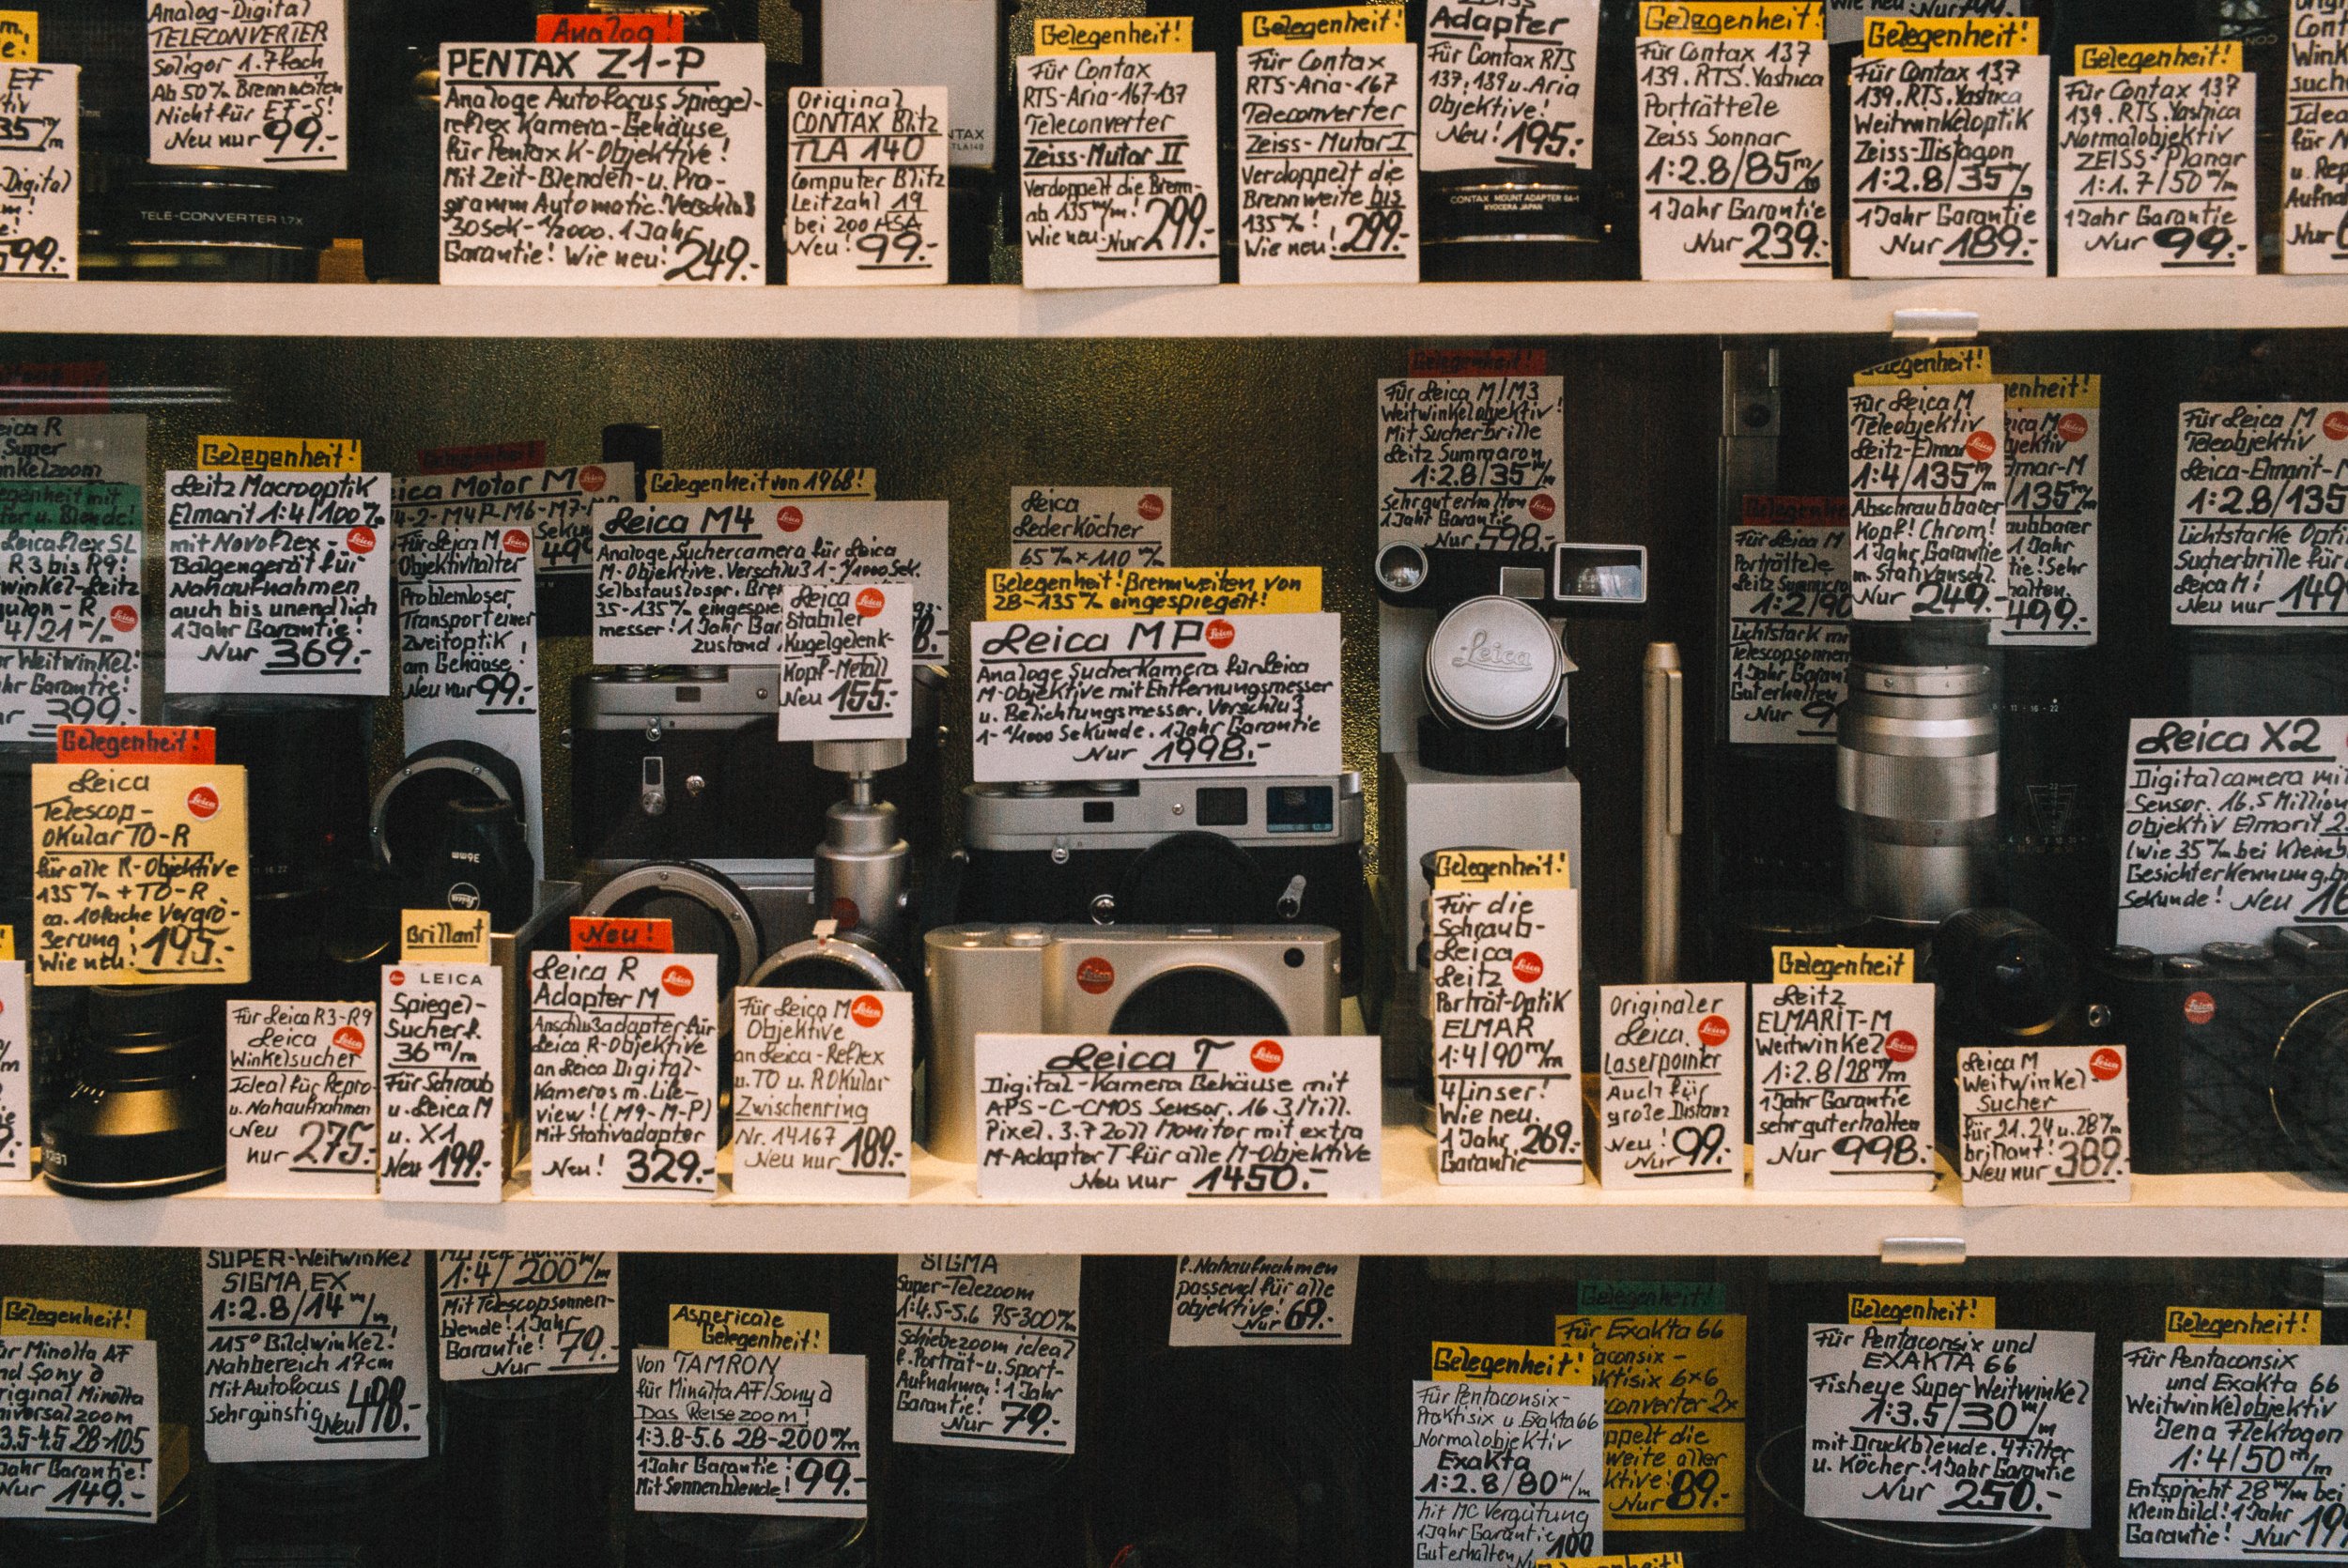 Analog-Digital
TELECONVERTER
Soligor 1.7fach
Ab 50% Brennweiten
Nicht für EF-S!
Neu nur 99.-
TELE-CONVERTER 1.7X
EF
35m/m
Digital
599.-
Analog!
PENTAX Z1-P
Analoge Autofocus Spiegel-
reflex Kamera-Gehäuse
für Pentax K-Objektive!
Mit Zeit-Blenden-u. Pro-
gramm Automatic. Verschluß
30sek-1/2000. 1 Jahr
Garantie! Wie neu! 249.-
Original
CONTAX Blitz
TLA 140
Computer Blitz
Leitzahl 19
bei 200 ASA
Neu! 99.-
Gelegenheit!
Für Contax
RTS-Aria-167-137
Teleconverter
Zeiss-Mutar II
Verdoppelt die Brenn-
ab 135m/m!
Wie neu! Nur 299.-
Gelegenheit!
Für Contax
RTS-Aria-167
Teleconverter
Zeiss-Mutar I
Verdoppelt die
Brennweite bis
135%!
Wie neu! 299.-
Zeiss
Adapter
Für Contax RTS
137, 139 u. Aria
Objektive!
Neu! 195.-
CONTAX MOUNT ADAPTER GA-1
KYOCERA JAPAN
Gelegenheit!
Für Contax 137
139. RTS. Yashica
Porträttele
Zeiss Sonnar
1:2.8/85m/m
1 Jahr Garantie
Nur 239.-
Gelegenheit!
Für Contax 137
139. RTS. Yashica
Weitwinkeloptik
Zeiss-Distagon
1:2.8/35m/m
1 Jahr Garantie
Nur 189.-
Gelegenheit!
Für Contax 137
139. RTS. Yashica
Normalobjektiv
ZEISS-Planar
1:1.7/50m/m
1 Jahr Garantie
Nur 99.-
Gelegenheit!
Leitz Macrooptik
Elmarit 1:4/100%
mit Novoflex-
Balgengerät für
Nahaufnahmen
auch bis unendlich
1 Jahr Garantie!
Nur 369.-
Leicaflex SL
R3 bis R9!
4/21
399.-
Leica Motor M
Für Leica M
Objektivhalter
Problemloser
Transport einer
Zweitoptik
am Gehäuse!
Neu nur 99.-
Gelegenheit von 1968!
Leica M4
Analoge Suchercamera für Leica
M-Objektive. Verschluß 1-1/1000 Sek.
Selbstauslöser.
35-135% eingespie
messer! 1 Jahr Gar
zustand
Leica
Stabiler
Kugelgelenk-
Kopf-Metall
Neu 155.-
Leica
Lederköcher
65m/m x 110m/m
Gelegenheit! Brennweiten von
28-135% eingespiegelt!
Leica MP
Analoge Sucherkamera für Leica
M-Objektive mit Entfernungsmesser
u. Belichtungsmesser. Verschluß
1-1/1000 Sekunde. 1 Jahr Garantie
Nur 1998.-
Gelegenheit!
Für Leica M/M3
Weitwinkelobjektiv!
Mit Sucherbrille
Leitz Summaron
1:2.8/35m/m
Sehr gut erhalten
1 Jahr Garantie
Nur 598.-
Leica
Gelegenheit!
Für Leica M
Porträttele
1:2/90
Lichtstark
1 Jahr Garan
Gut erhalten
Gelegenheit!
Für Leica M
Teleobjektiv
Leitz-Elmar
1:4/135m/m
Abschraubbarer
Kopf! Chrom!
1 Jahr Garantie
Nur 249.-
135m/m
1 Jahr
499.-
Für Leica M
Teleobjektiv
Leica-Elmarit-M
1:2.8/135
Lichtstarke Opti
Sucherbrille für
Leica M!
Neu nur 149
Leica X2
Digitalcamera mit
Sensor. 16.5 Million
Objektiv Elmarit
(wie 35% bei Kleinb
Gesichterkennung
Sekunde! Neu
Gelegenheit!
Leica
Telescop-
Okular TO-R
für alle R-Objektive
135% + TO-R
ca. 10fache Vergrö-
ßerung!
Wie neu! 195.-
Für Leica R3-R9
Leica
Winkelsucher
Ideal für Repro-
u. Nahaufnahmen
Neu
nur 275.-
Brillant
LEICA
Spiegel-
Sucher f.
36m/m
Für Schraub
u. Leica M
u. X1
Neu 199.-
Neu!
Leica R
Adapter M
Anschlußadapter für
Leica R-Objektive
an Leica Digital-
Kameras m. Life-
view! (M9-M-P)
Mit Stativadapter
Neu! 329.-
Für Leica M
Objektive
an Leica-Reflex
u. TO u. ROKular
Zwischenring
Nr. 14167
Neu nur 189.-
Leica T
Digital-Kamera Gehäuse mit
APS-C-CMOS Sensor. 16.3 Mill.
Pixel. 3.7 Zoll Monitor mit extra
M-Adapter T für alle M-Objektive
Neu nur 1450.-
Gelegenheit!
Für die
Schraub-
Leica
Leitz
Porträt-Optik
ELMAR
1:4/90m/m
4 Linser!
Wie neu.
1 Jahr
Garantie 269.-
Originaler
Leica
Laserpointer
Auch für
große Distanz
Neu!
Nur 99.-
Gelegenheit
Leitz
ELMARIT-M
Weitwinkel
1:2.8/28m/m
1 Jahr Garantie
sehr gut erhalten
Nur 998.-
Leica M
Weitwinkel-
Sucher
für 21.24 u. 28%
brillant!
Neu nur 389.-
Gelegenheit!
für Minolta AF
und Sony α
Original Minolta
3.5-4.5 28-105
Jahr Garantie!
Nur 149.-
SUPER-Weitwinkel
SIGMA EX
1:2.8/14m/m
115° Bildwinkel!
Nahbereich 17cm
Mit Autofocus
Sehr günstig
Neu 498.-
1:4/200m/m
Mit Telescopsonnen-
blende! 1 Jahr
Garantie!
Nur 79.-
Aspericale
Gelegenheit!
Von TAMRON
für Minolta AF/Sony α
Das Reisezoom!
1:3.8-5.6 28-200m/m
1 Jahr Garantie!
Mit Sonnenblende! 99.-
SIGMA
Super-Telezoom
1:4.5-5.6 75-300m/m
Schiebezoom ideal
f. Porträt-u. Sport-
Aufnahmen! 1 Jahr
Garantie!
Nur 79.-
f. Nahaufnahmen
passend für alle
Objektive!
Nur 69.-
Gelegenheit!
Für Pentaconsix-
Praktisix u. Exakta 66
Normalobjektiv
Exakta
1:2.8/80m/m
mit MC Vergütung
1 Jahr Garantie
Gut erhalten 100
Gelegenheit!
Für Exakta 66
6x6
converter 2x
Nur 89.-
Gelegenheit!
Für Pentaconsix und
EXAKTA 66
Fisheye Super Weitwinkel
1:3.5/30m/m
mit Druckblende. 4 Filter
u. Köcher! 1 Jahr Garantie
Nur 250.-
Gelegenheit!
Für Pentaconsix
und Exakta 66
Weitwinkelobjektiv
Jena Flektogon
1:4/50m/m
Entspricht 28m/m bei
Kleinbild! 1 Jahr
Garantie! Nur 19